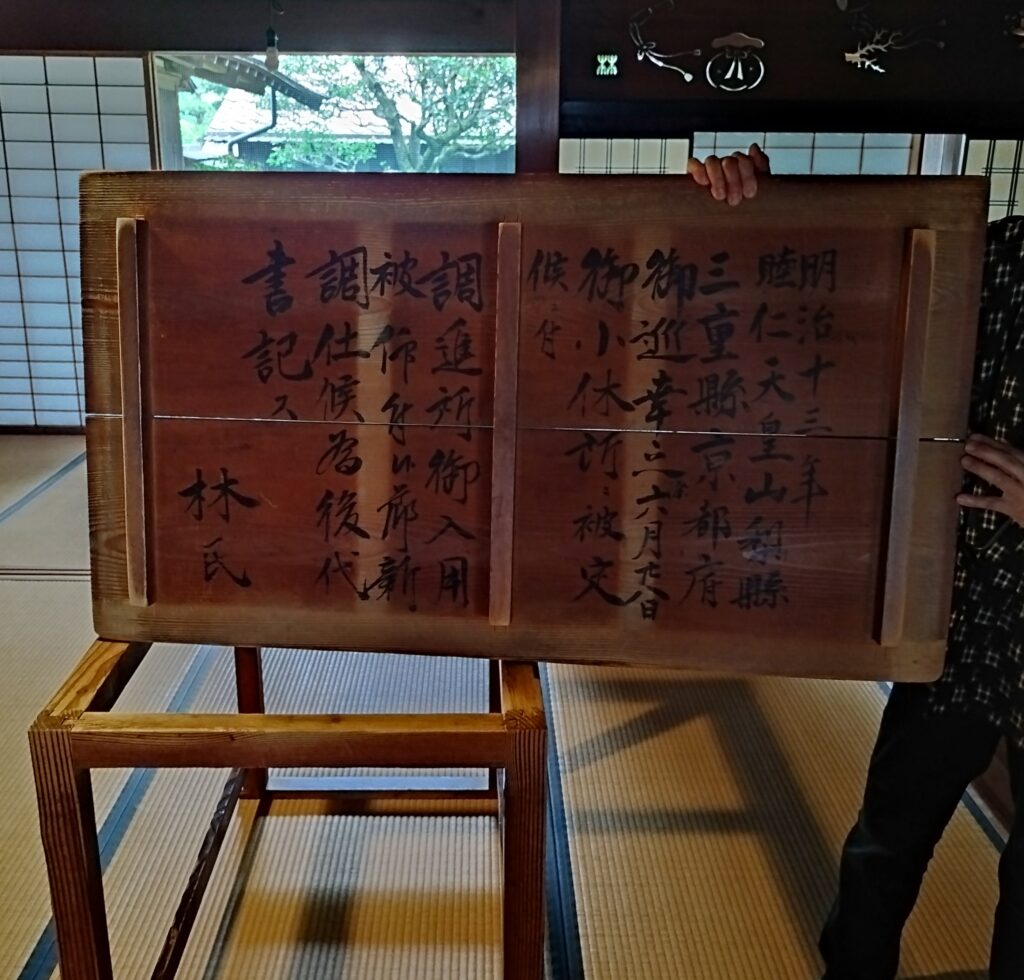 明治十三年
睦仁天皇山梨縣
三重縣京都府
御巡幸之六月廿八日
御小休所ニ被定
候ニ付
調進所御入用
被 仰付
調仕候為後代
書記ス
林氏